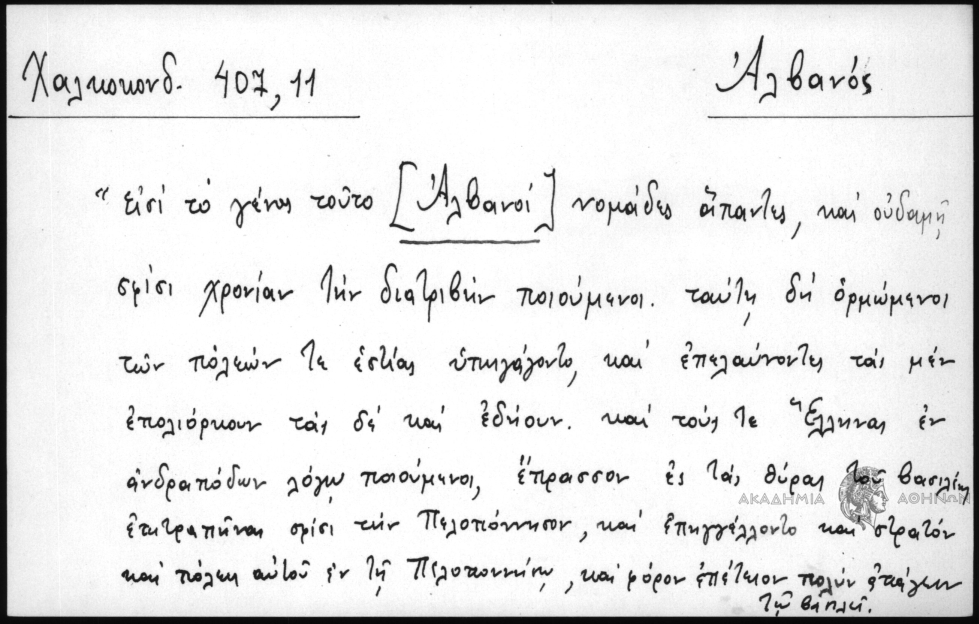 Χαλκοκονδ. 407, 11
Ἀλβανός
“εἰσί τό γένος τοῦτο [Ἀλβανοί] νομάδες ἅπαντες, καί οὐδαμῇ
σφίσι χρονίαν τήν διατριβήν ποιούμενοι. ταύτῃ δή ὁρμώμενοι
τῶν πόλεών τε ἑστίας ὑπηγάγοντο, καί ἐπελαύνοντες τάς μέν
ἐπολιόρκουν τάς δέ καί ἐδῄουν. καί τούς τε Ἕλληνας ἐν
ἀνδραπόδων λόγῳ ποιούμενοι, ἔπρασσον ἐς τάς θύρας τοῦ βασιλέως
ἐπιτραπῆναι σφίσι τήν Πελοπόννησον, καί ἐπηγγέλλοντο καί στρατόν
καί πόλεις αὐτοῦ ἐν τῇ Πελοποννήσῳ, καί φόρον ἐπέτειον πολύν ἐπάγειν
τῷ βασιλεῖ.
ΑΚΑΔΗΜΙΑ ΑΘΗΝΩΝ